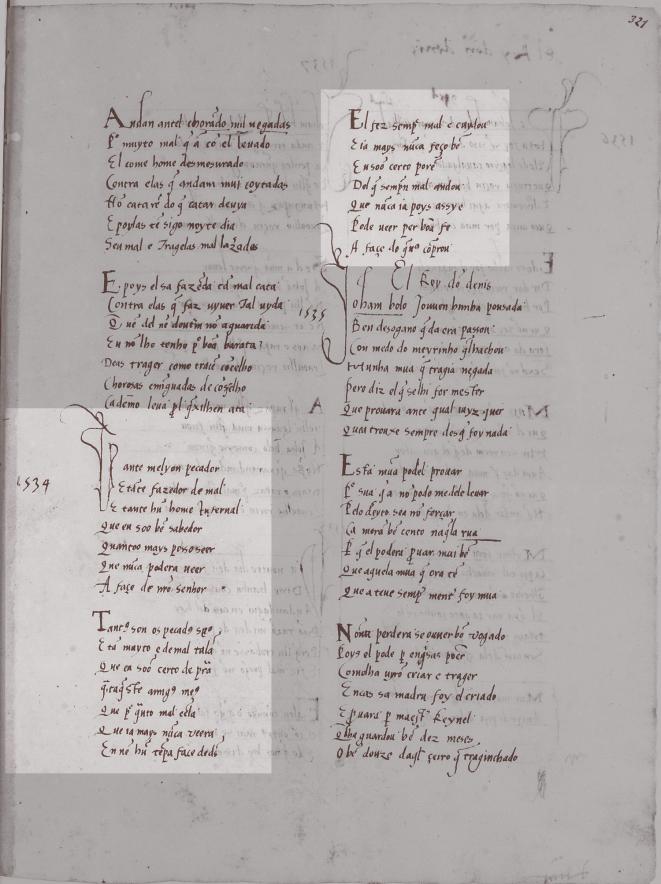 321
Andan antel chorādo mil uegadas
Pº muyto mal q̃ a cō el leuado
El come home desmesurado
Contra elas q̃ andam mui coytadas
Nō catarē do q̃ catar deuya
E poylas tē sigo noyte dia
Seu mal e Tragelas mal lazadas
E poys elsa fazēda tā mal cata
Contra elas q̃ faz uyuer Tal uyda
Que del nē doutrē nō aguarida
Eu nō lho tenho pº bōa barata
Deas trager como traie cōcelho
Chorosas cōselho
1534
ante melyon pecador
E tāte fazedor de mal
E tante hū home Infernal
Que eu soo bē sabedor
Quantoo mays pososeer
Que nūca podera ueer
A façe de nr̃o senhor
Tantº son os pecadº seº
E tā muyto e demal tala
Que eu soō certo de prā
Que pº q̃uto mal eēla
Que ia mays nūca ueera
En nē hū tēpa face dedś
El fez sempº mal e cuydou
E ia mays nūca feço bē
Eu soō certo porē
Del q̃ sempº mal andou
Que nūca ia poys assy e
Pode ueer per bōa fe
A façe do q̃ nos cōprou
El Rey dō denis
1535
Joham bolo Jouuen hunha pousada
Ben desogano q̃da era passou
Con medo do meyrinho q̃lhachou
hunha mua q̃ tragia negada
Pero diz el q̃ selhi for mester
Que prouara ante qual iuyz quer
Quea trouxe sempre desq̃ foy nada
Esta mūa podel prouar
Pº sua q̃ a nō pode mēdele leuar
Pelo deyto sea nō forçar
Ca mora bē cento naq̃la rua
Pº q̃ el podera ꝓuar mui bē
Que aquela mua q̃ ora tē
Que a teue sempº mentº foy mua
Nōna perdera se ouuer bō uogado
Poys el pode pº enq̃sas poēr
Comolha uirō criar e trager
E en cas sa madrē foy el criado
E ꝓuara pº maestº Reynel
Que lha guardou bē dez meses
O bē douze daq̃l çerro q̃ traginchado